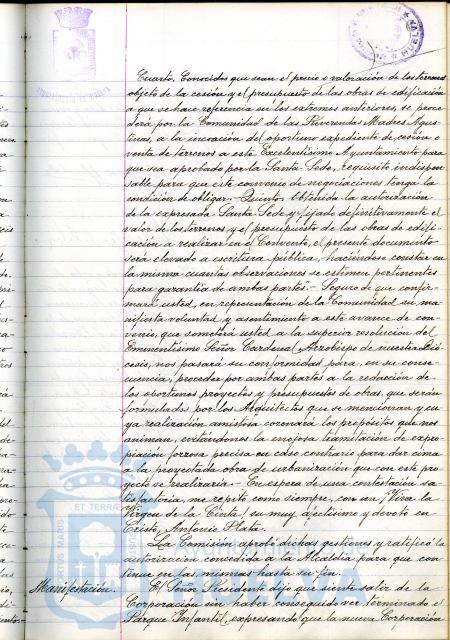 Cuarto. Conocidos que sean el precio o valoración de los terrenos
objeto de la cesión y el presupuesto de las obras de edificación
a que se hace referencia en los extremos anteriores, se proce-
derá por la Comunidad de las Reverendas Madres Agus-
tinas, a la incoación del oportuno expediente de cesión o
venta de terrenos a este Excelentísimo Ayuntamiento para
que sea aprobado por la Santa Sede, requisito indispen-
sable para que este convenio de negociaciones tenga la
condición de obligar.- Quinto. Obtenida la autorización
de la expresada Santa Sede y fijado definitivamente el
valor de los terrenos y el presupuesto de las obras de edifi-
cación a realizar en el Convento, el presente documento
será elevado a escritura pública, haciéndose constar en
la misma cuantas observaciones se estimen pertinentes
para garantía de ambas partes.- Seguro de que confir-
mará usted, en representación de la Comunidad su ma-
nifiesta voluntad, y asentimiento a este avance de con-
venio, que someterá usted a la superior resolución del
Eminentísimo Señor Cardenal Arzobispo de nuestra Dió-
cesis, nos pasará su conformidad para, en su conse-
cuencia, proceder por ambas partes a la redacción de
los oportunos proyectos y presupuestos de obras, que serán
formulados por los Arquitectos que se mencionan y cu-
ya realización amistosa coronará los propósitos que nos
animan, evitándonos la enojosa tramitación de expro-
piación forzosa precisa en caso contrario para dar cima
a la proyectada obra de urbanización que con este pro-
yecto se realizaría.- En espera de una contestación sa-
tisfactoria, me repito como siempre, con un ¡Viva la
Virgen de la Cinta! su muy afectísimo y devoto en
Cristo, Antonio Plata.
La Comisión aprobó dichas gestiones y ratificó la
autorización concedida a la Alcaldía para que con-
tinue en las mismas hasta su fin.
Manifestación. El Señor Presidente dijo que siente salir de la
Corporación sin haber conseguido ver terminado el
Parque Infantil, expresando que la nueva Corporación